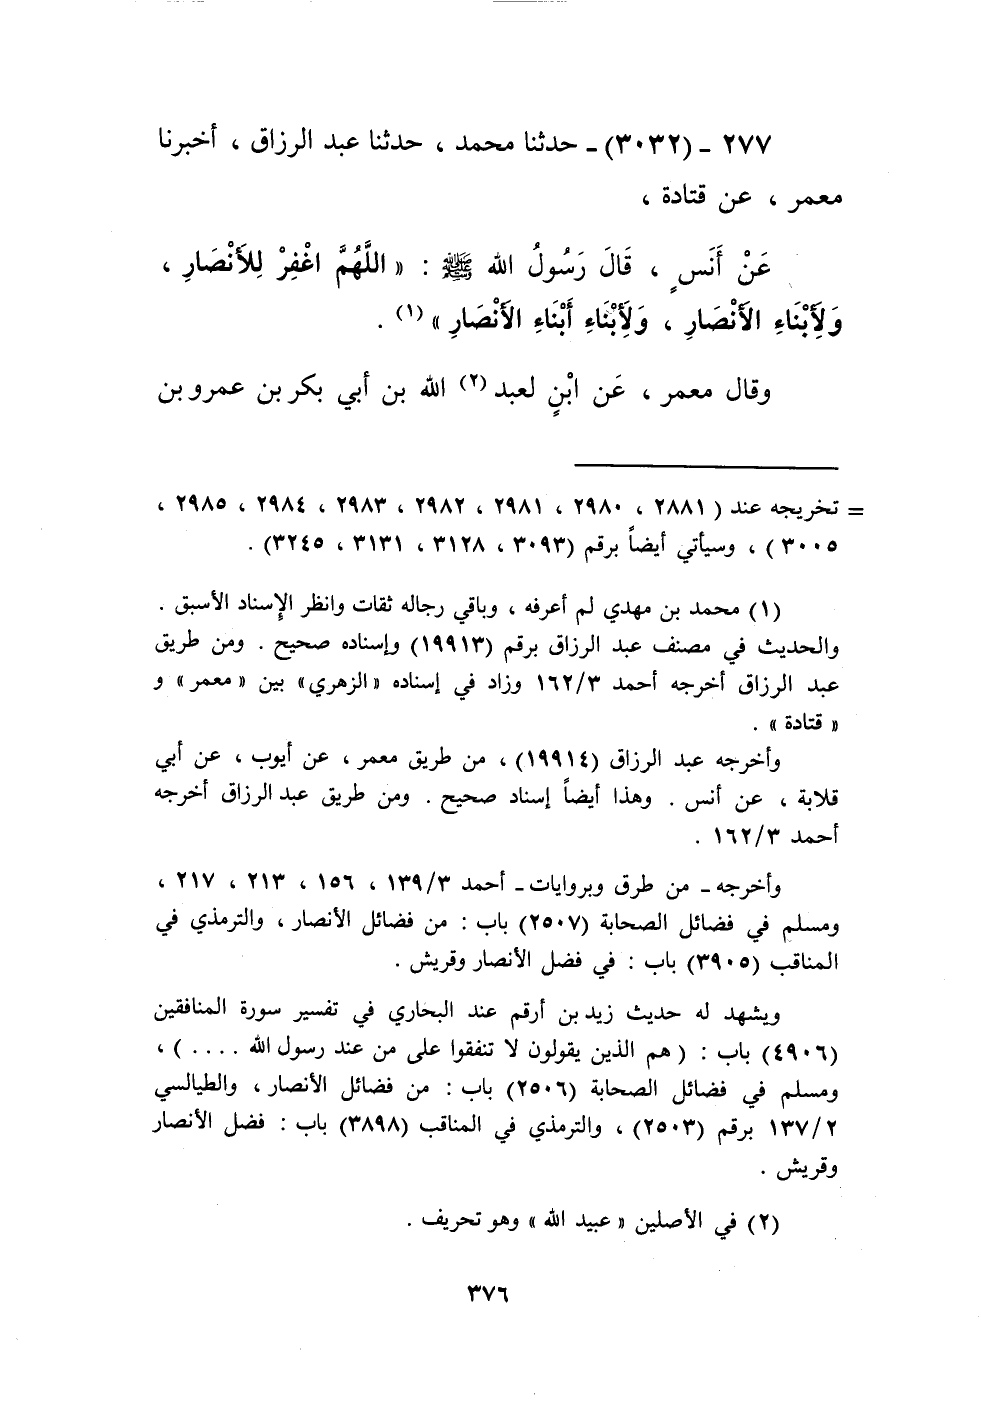 ٢٧٧ - (٣٠٣٢) - حدثنا محمد ، حدثنا عبد الرزاق ، أخبرنا
معمر ، عن قتادة ،
عَنْ أَنَسٍ ، قَالَ رَسُولُ الله ﷺ : « اللَّهُمَّ اغْفِرْ لِلأَنْصَارِ ،
وَلِأَبْنَاءِ الأَنْصَارِ ، وَلِأَبْنَاءِ أَبْنَاءِ الأَنْصَارِ » (١) .
وقال معمر ، عَن ابْنٍ لعبد (٢) الله بن أبي بكر بن عمرو بن
= تخريجه عند ( ٢٨٨١ ، ٢٩٨٠ ، ٢٩٨١ ، ٢٩٨٢ ، ٢٩٨٣ ، ٢٩٨٤ ، ٢٩٨٥ ،
٣٠٠٥ ) ، وسيأتي أيضاً برقم (٣٠٩٣ ، ٣١٢٨ ، ٣١٣١ ، ٣٢٤٥) .
(١) محمد بن مهدي لم أعرفه ، وباقي رجاله ثقات وانظر الإسناد الأسبق .
والحديث في مصنف عبد الرزاق برقم (١٩٩١٣) وإسناده صحيح . ومن طريق
عبد الرزاق أخرجه أحمد ١٦٢/٣ وزاد في إسناده «الزهري» بين «معمر» و
« قتادة » .
وأخرجه عبد الرزاق (١٩٩١٤) ، من طريق معمر ، عن أيوب ، عن أبي
قلابة ، عن أنس . وهذا أيضاً إسناد صحيح . ومن طريق عبد الرزاق أخرجه
أحمد ١٦٢/٣ .
وأخرجه - من طرق وبروايات - أحمد ١٣٩/٣ ، ١٥٦ ، ٢١٣ ، ٢١٧ ،
ومسلم في فضائل الصحابة (٢٥٠٧) باب : من فضائل الأنصار ، والترمذي في
المناقب (٣٩٠٥) باب : في فضل الأنصار وقريش .
ويشهد له حديث زيد بن أرقم عند البخاري في تفسير سورة المنافقين
(٤٩٠٦) باب : ( هم الذين يقولون لا تنفقوا على من عند رسول الله .... ) ،
ومسلم في فضائل الصحابة (٢٥٠٦) باب : من فضائل الأنصار ، والطيالسي
١٣٧/٢ برقم (٢٥٠٣) ، والترمذي في المناقب (٣٨٩٨) باب : فضل الأنصار
وقريش .
(٢) في الأصلين « عبيد الله » وهو تحريف .
٣٧٦